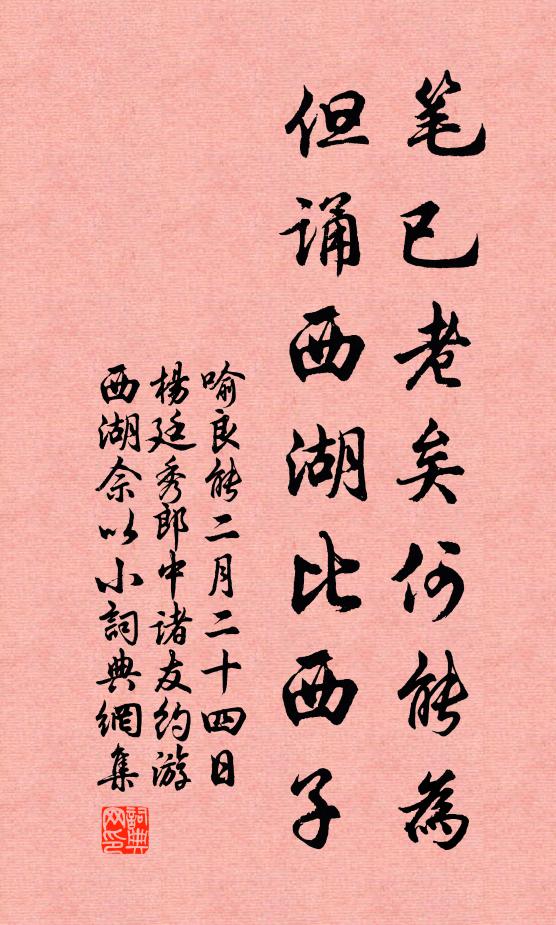 笔已老矣何能為
但诵西湖比西子
喻良能二月二十四日
楊廷秀郎中诸友约游
西湖余以小詞典網集
詞典网印